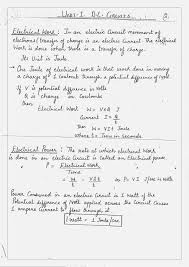 Unit-I D.C. Circuits
Electrical Work : In an electric circuit movement of
electrons/transfer of charge is an electric current. The electrical
Work is done when there is a transfer of charge.
Its Unit is Joule.
One Joule of Electrical work is that work done in moving
a charge of 1 Coulomb through a potential difference of 1 Volt
if V is potential difference in Volts
Q is charge in Coulombs
then
Electrical Work W = V x Q J
Current I = Q/t
then W = VIt Joules
Where t = Time in Seconds
Electrical Power : The rate at which electrical work
is done in an electric circuit is called an Electrical power
P = Electrical Work / Time
= W/t = VIt/t ⇒ P = VI J/sec in Watts
Power Consumed in an electric circuit is 1 watt if the
Potential difference of 1 Volt applied across the circuit causes
1 ampere Current to flow through it
1 Watt = 1 Joule/sec